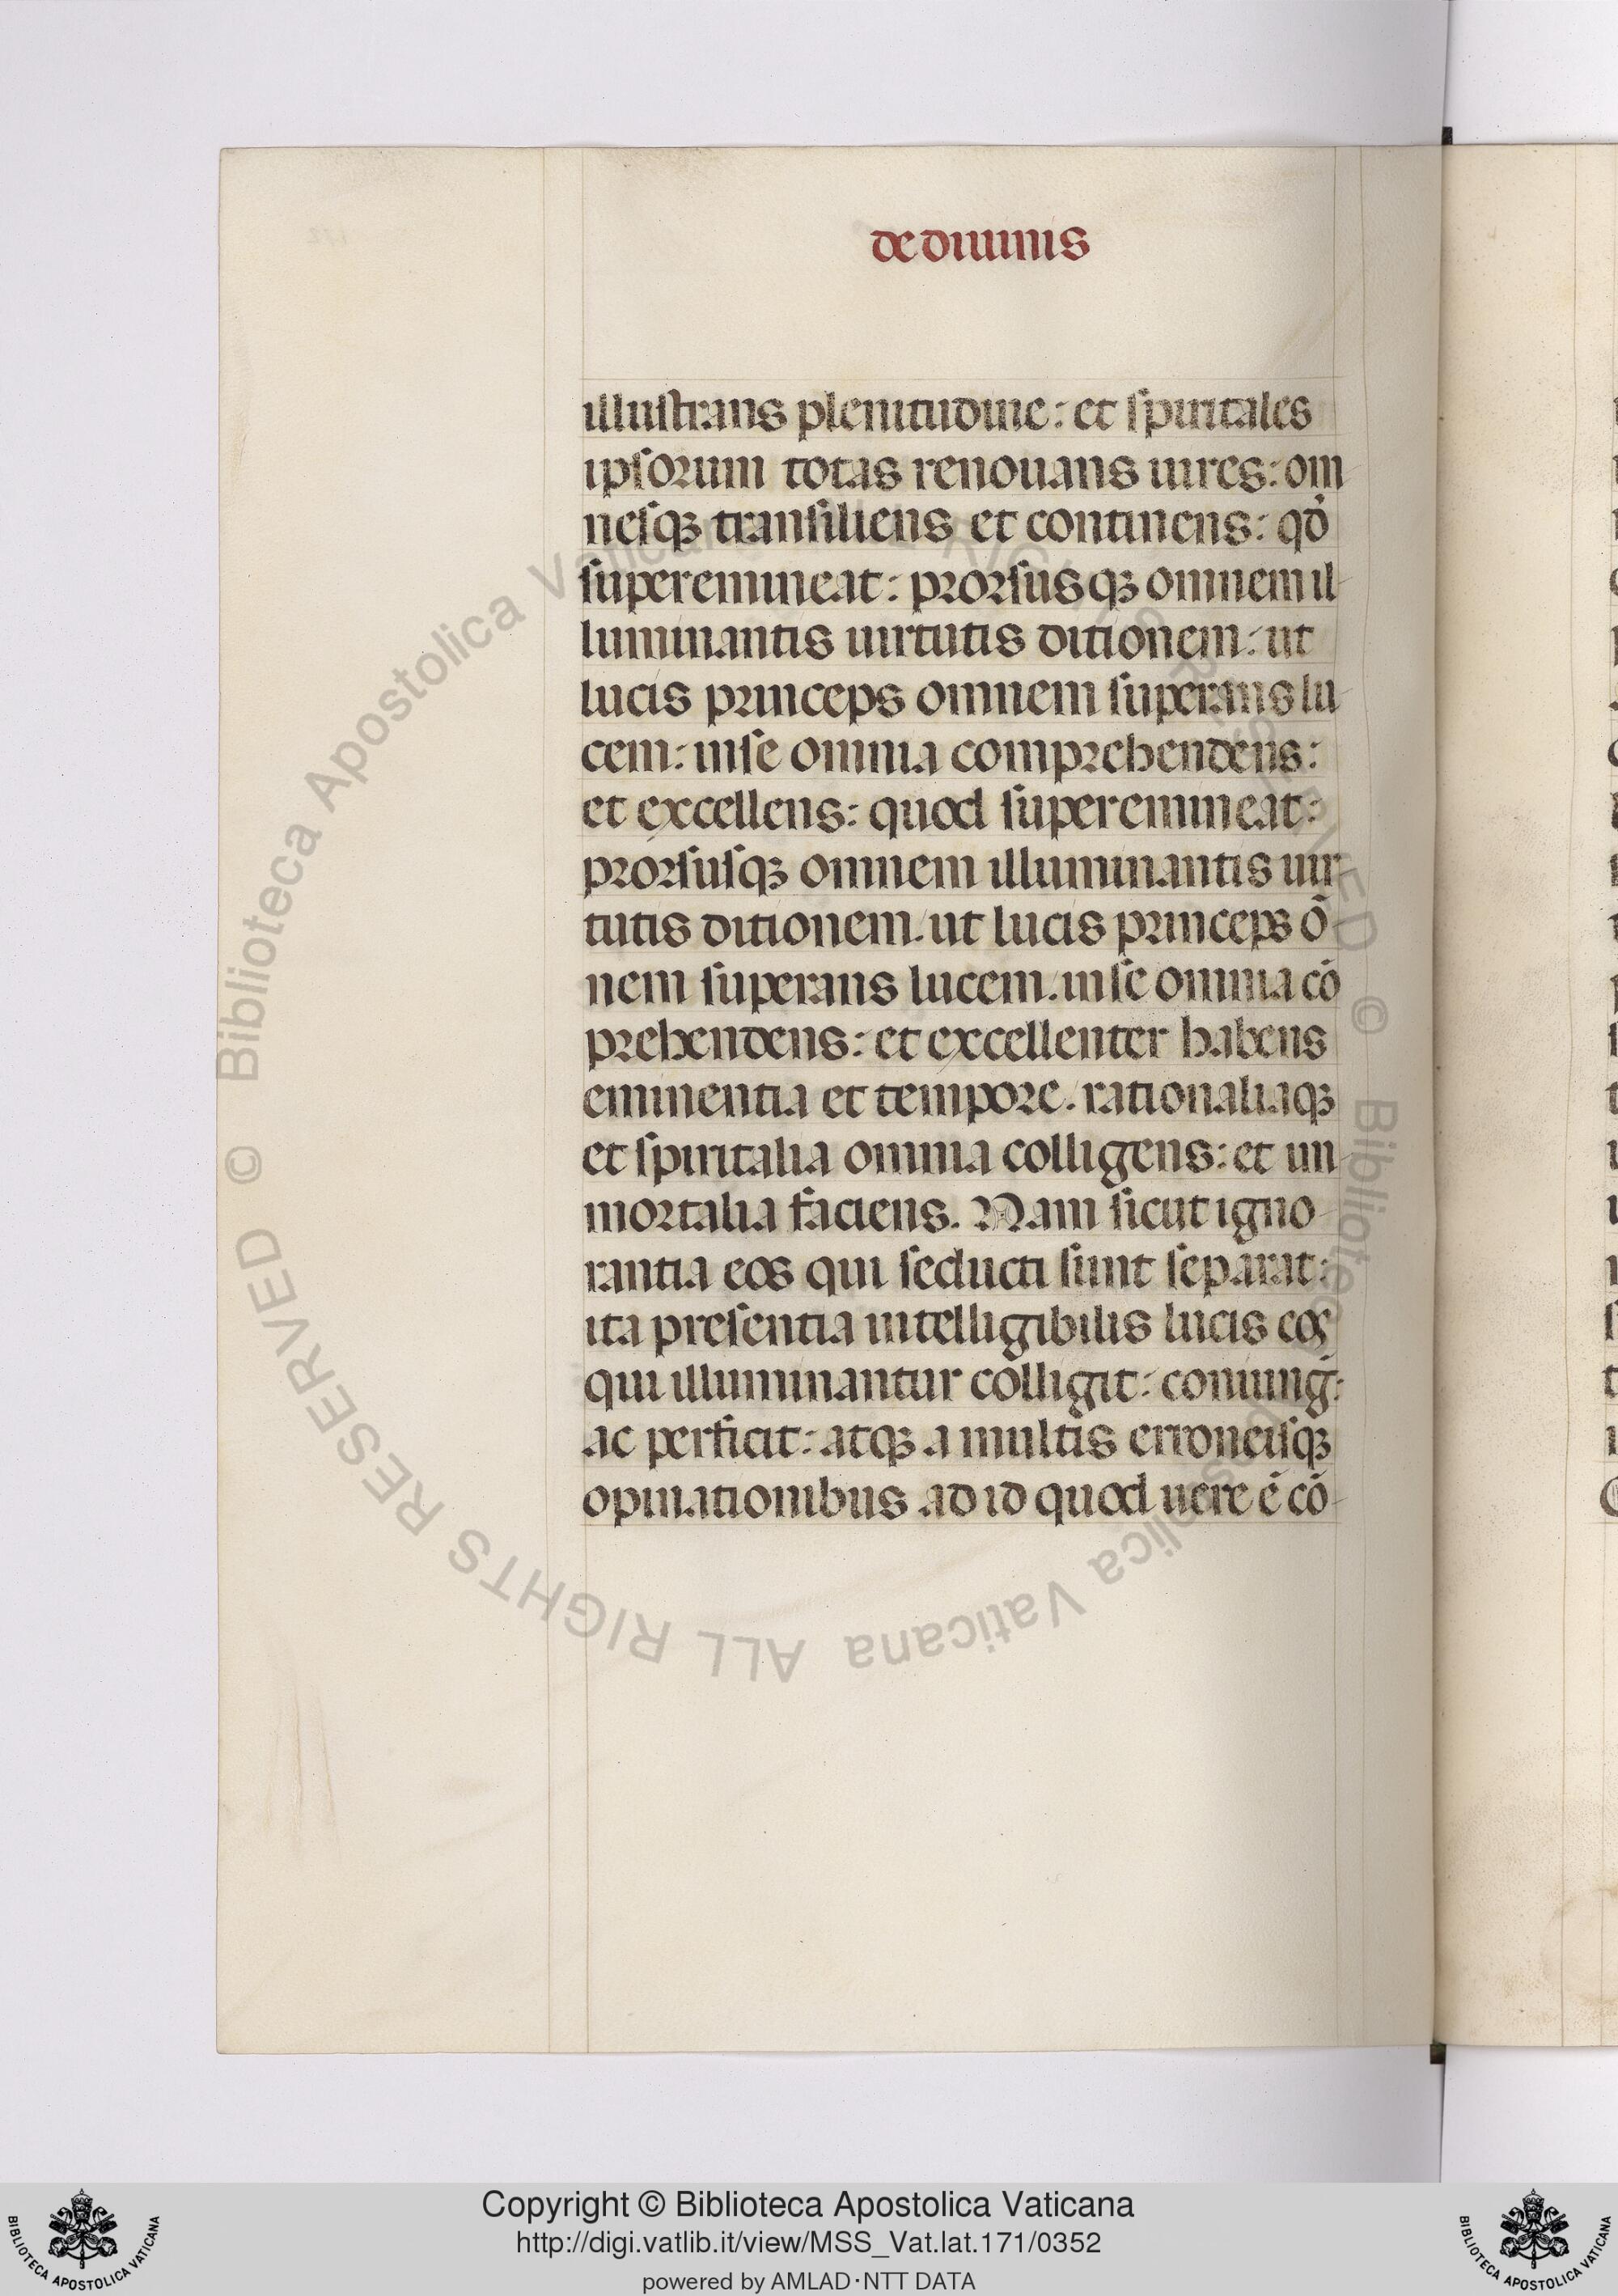 de diuinis
illustrans plenitudine: et spiritales
ipsorum totas renouans uires: om
nesqꝫ transiliens et continens: qđ
superemineat: prorsusqꝫ omnem il-
luminantis uirtutis ditionem: ut
lucis princeps omnem superans lu-
cem: inse omnia comprehendens:
et excellens: quod superemineat:
prorsusqꝫ omnem illuminantis uir-
tutis ditionem. ut lucis princeps õ-
nem superans lucem. inse omnia cō
prehendens: et excellenter habens
eminentia et tempore. rationaliaqꝫ
et spiritalia omnia colligens: et im-
mortalia faciens. Nam sicut igno-
rantia eos qui seducti sunt separat:
ita presentia intelligibilis lucis eos
qui illuminantur colligit: coniunḡ:
ac perficit: atqꝫ a multis erroneisqꝫ
opinationibus ad id quod uere ē cō-
Copyright © Biblioteca Apostolica Vaticana
http://digi.vatlib.it/view/MSS_Vat.lat.171/0352
powered by AMLAD·NTT DATA
BIBLIOTECA APOSTOLICA VATICANA
BIBLIOTECA APOSTOLICA VATICANA
© Biblioteca Apostolica Vaticana ALL RIGHTS RESERVED